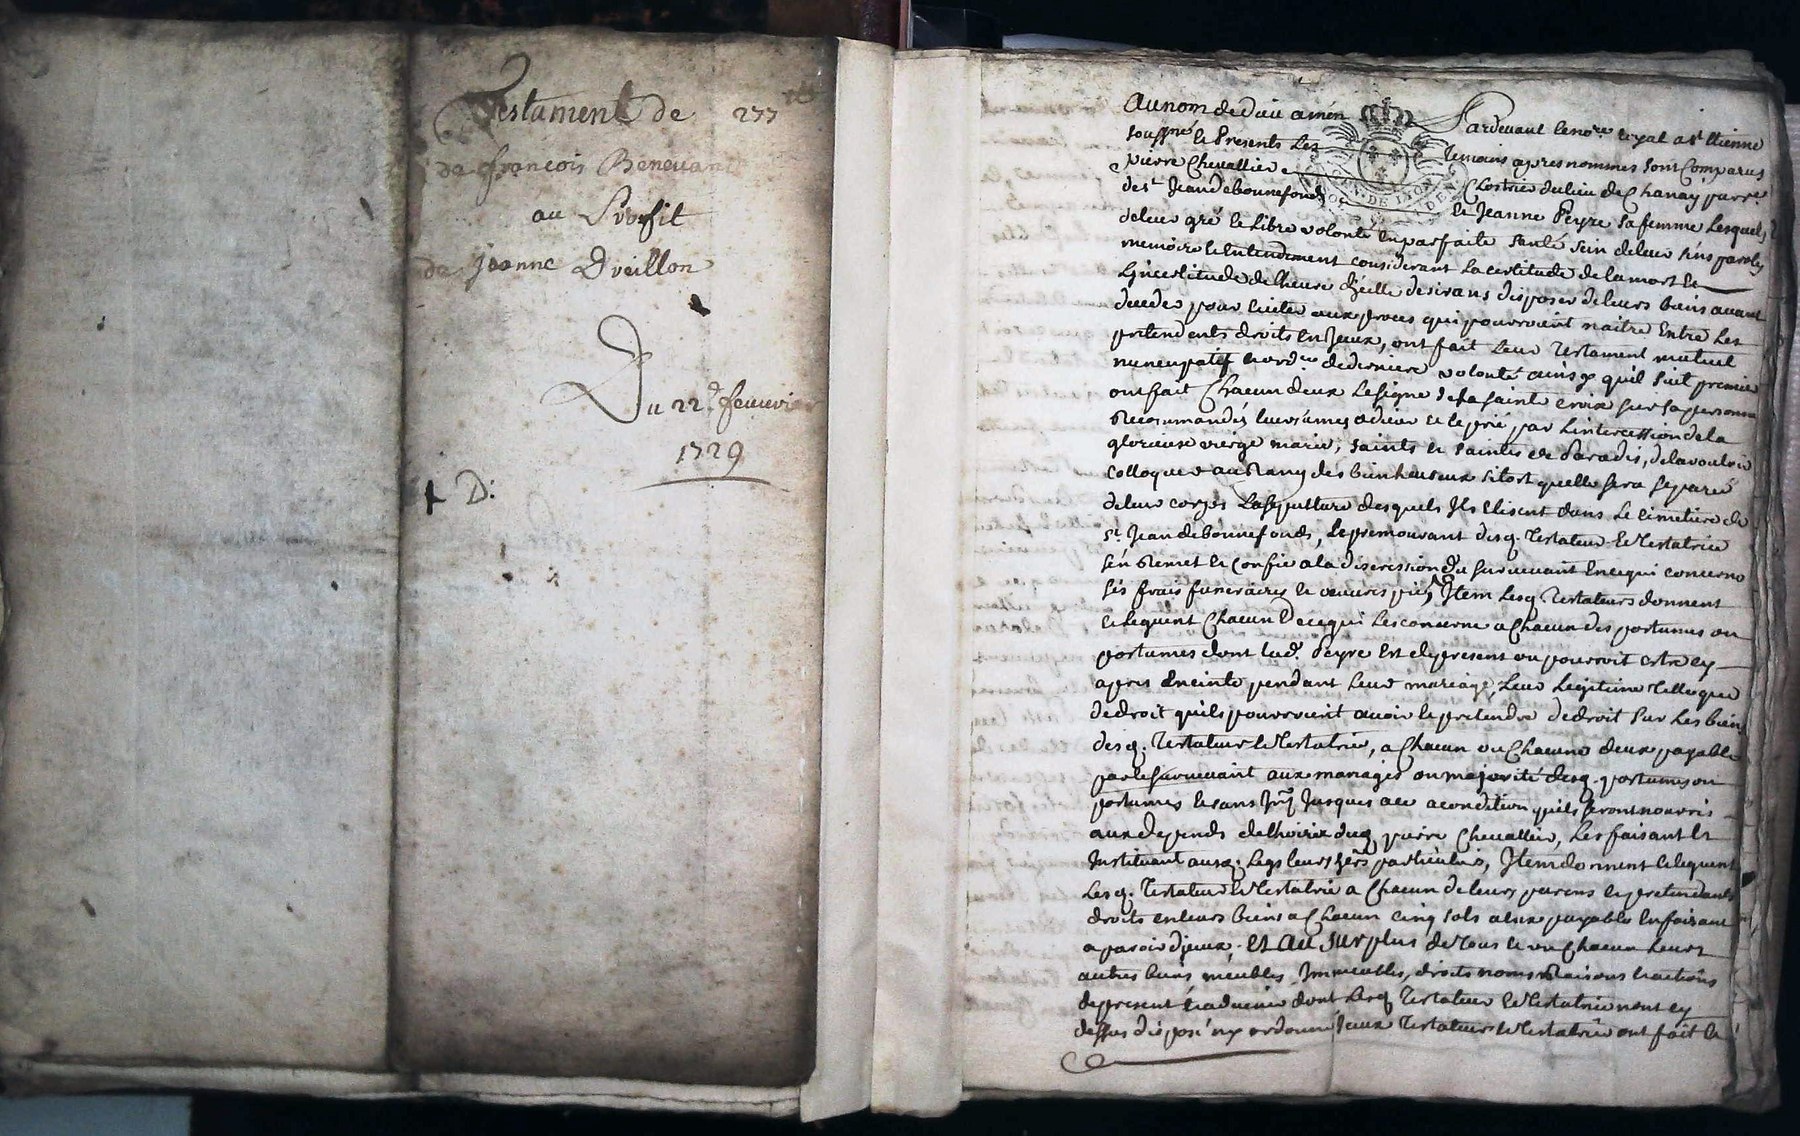 Testament de 277
de françois Benevant
au Proffit
de Jeanne Dreillon
Du 22.e feuvrier
1729
D:
Au nom de dieu amen Pardevant le no.re royal a st Etienne
soussné le Presents Les temoins apres nommes sont Comparus
pierre Chevallier Clostrier du lieu de Chanay parr.e
de st Jean de bonnefonds et Jeanne Peyre sa femme Lesquels
de leur gré et libre volonté en parfaite santé sein de leur sens parolle
memoire et entendement considerant la certitude de la mort et
L'incertitude de l'heure d'icelle desirans disposer de leurs biens avant
deceder pour eviter aux proces qui pourroient naitre Entre Les
pretendents droits en iceux, ont fait Leur testament mutuel
nuncupatif et ord.re de derniere volonté ainsy quil suit premier
ont fait Chacun deux Le signe de la sainte croix sur sa personne
Recommandés leurs ames a dieu et le prié par L'intercession de la
glorieuse vierge marie, saints et saintes de Paradis, de la vouloir
colloquer au Rang des bienheureux sitost quelle sera separée
de leur corps La sepulture desquels Ils Elisent dans Le cimetiere de
st. Jean de bonnefonds, Le premourant desq. testateur et testatrice
s'en Remet et Confie a la discression du survivant En ce qui concerne
ses frais funeraires et oeuvres pies, Item Lesq. testateurs donnent
et Leguent Chacun En ce qui Les concerne a Chacun des postumes ou
postumes dont lad. Peyre Est de present ou pourroit estre cy
apres Enceinte pendant Leur mariage, Leur Legitime telle que
de droit quils pourroient avoir et pretendre de droit sur Les biens
desq. testateur et testatrice, a Chacun ou Chacune deux payable
par le survivant aux mariages ou majorité desq. postumes ou
postumes et sans Int. Jusques a ce a condition quils seront nourris
aux depends de l'hoirie dud. pierre Chevallier, Les faisant Et
Instituant auxq. Legs leurs hers. particuliers, Item donnent et leguent
Lesq. testateur et testatrice a Chacun de leurs parens et pretendants
droits en leurs biens a Chacun cinq sols a eux payable En faisant
aparoir d'iceux. Et Au surplus de tous et un Chacun Leurs
autres biens meubles, Immeubles, droits noms Raisons et actions
de present et advenir dont Lesq. testateur et testatrice nont cy
dessus disposé ny ordonné iceux testateur et testatrice ont fait et